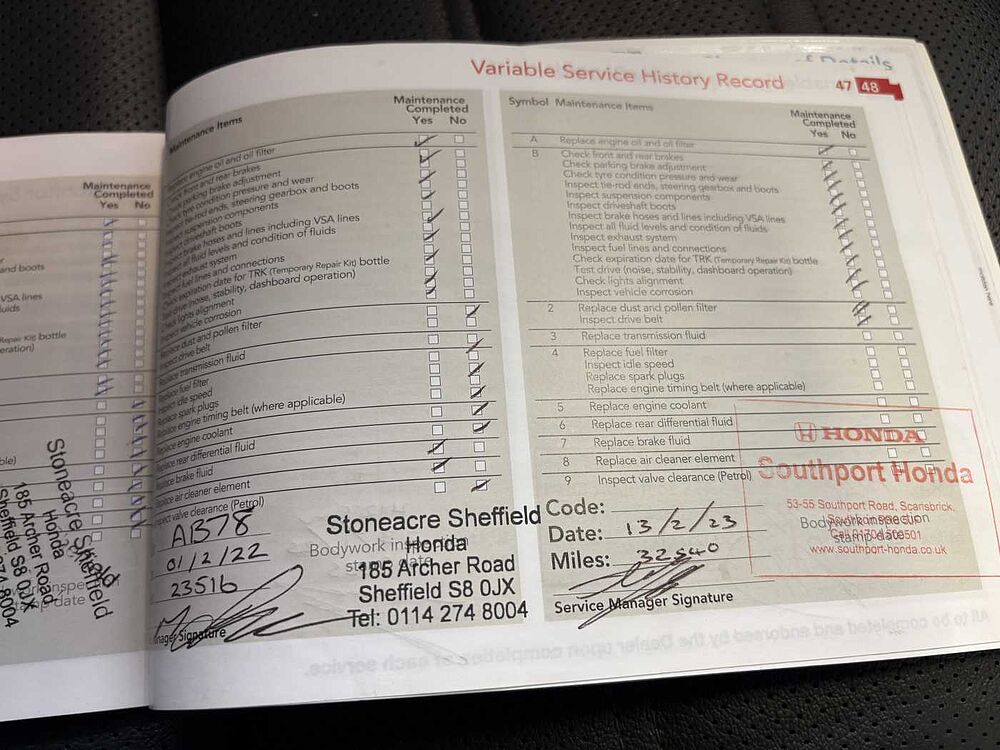 Variable Service History Record
47 48
Maintenance
Completed
Yes No
and boots
VSA lines
fluids
Repair Kit) bottle
operation)
Stoneacre Sheffield
Honda
185 Archer Road
Sheffield S8 0JX
274 8004
Maintenance Items
Maintenance
Completed
Yes No
engine oil and oil filter
front and rear brakes
parking brake adjustment
tyre condition pressure and wear
tie-rod ends, steering gearbox and boots
suspension components
driveshaft boots
brake hoses and lines including VSA lines
all fluid levels and condition of fluids
exhaust system
fuel lines and connections
Check expiration date for TRK (Temporary Repair Kit) bottle
drive (noise, stability, dashboard operation)
lights alignment
Inspect vehicle corrosion
Replace dust and pollen filter
Inspect drive belt
Replace transmission fluid
Replace fuel filter
idle speed
Replace spark plugs
Replace engine timing belt (where applicable)
Replace engine coolant
Replace rear differential fluid
Replace brake fluid
Replace air cleaner element
Inspect valve clearance (Petrol)
A1B78
01/2/22
23516
Manager Signature
Bodywork inspection
stamp date
Stoneacre Sheffield
Honda
185 Archer Road
Sheffield S8 0JX
Tel: 0114 274 8004
Symbol Maintenance Items
Maintenance
Completed
Yes No
A Replace engine oil and oil filter
B Check front and rear brakes
Check parking brake adjustment
Check tyre condition pressure and wear
Inspect tie-rod ends, steering gearbox and boots
Inspect suspension components
Inspect driveshaft boots
Inspect brake hoses and lines including VSA lines
Inspect all fluid levels and condition of fluids
Inspect exhaust system
Inspect fuel lines and connections
Check expiration date for TRK (Temporary Repair Kit) bottle
Test drive (noise, stability, dashboard operation)
Check lights alignment
Inspect vehicle corrosion
2 Replace dust and pollen filter
Inspect drive belt
3 Replace transmission fluid
4 Replace fuel filter
Inspect idle speed
Replace spark plugs
Replace engine timing belt (where applicable)
5 Replace engine coolant
6 Replace rear differential fluid
7 Replace brake fluid
8 Replace air cleaner element
9 Inspect valve clearance (Petrol)
Code:
Date: 13/2/23
Miles: 32540
Service Manager Signature
HONDA
Southport Honda
53-55 Southport Road, Scarisbrick,
Bodywork inspection
stamp date
www.southport-honda.co.uk